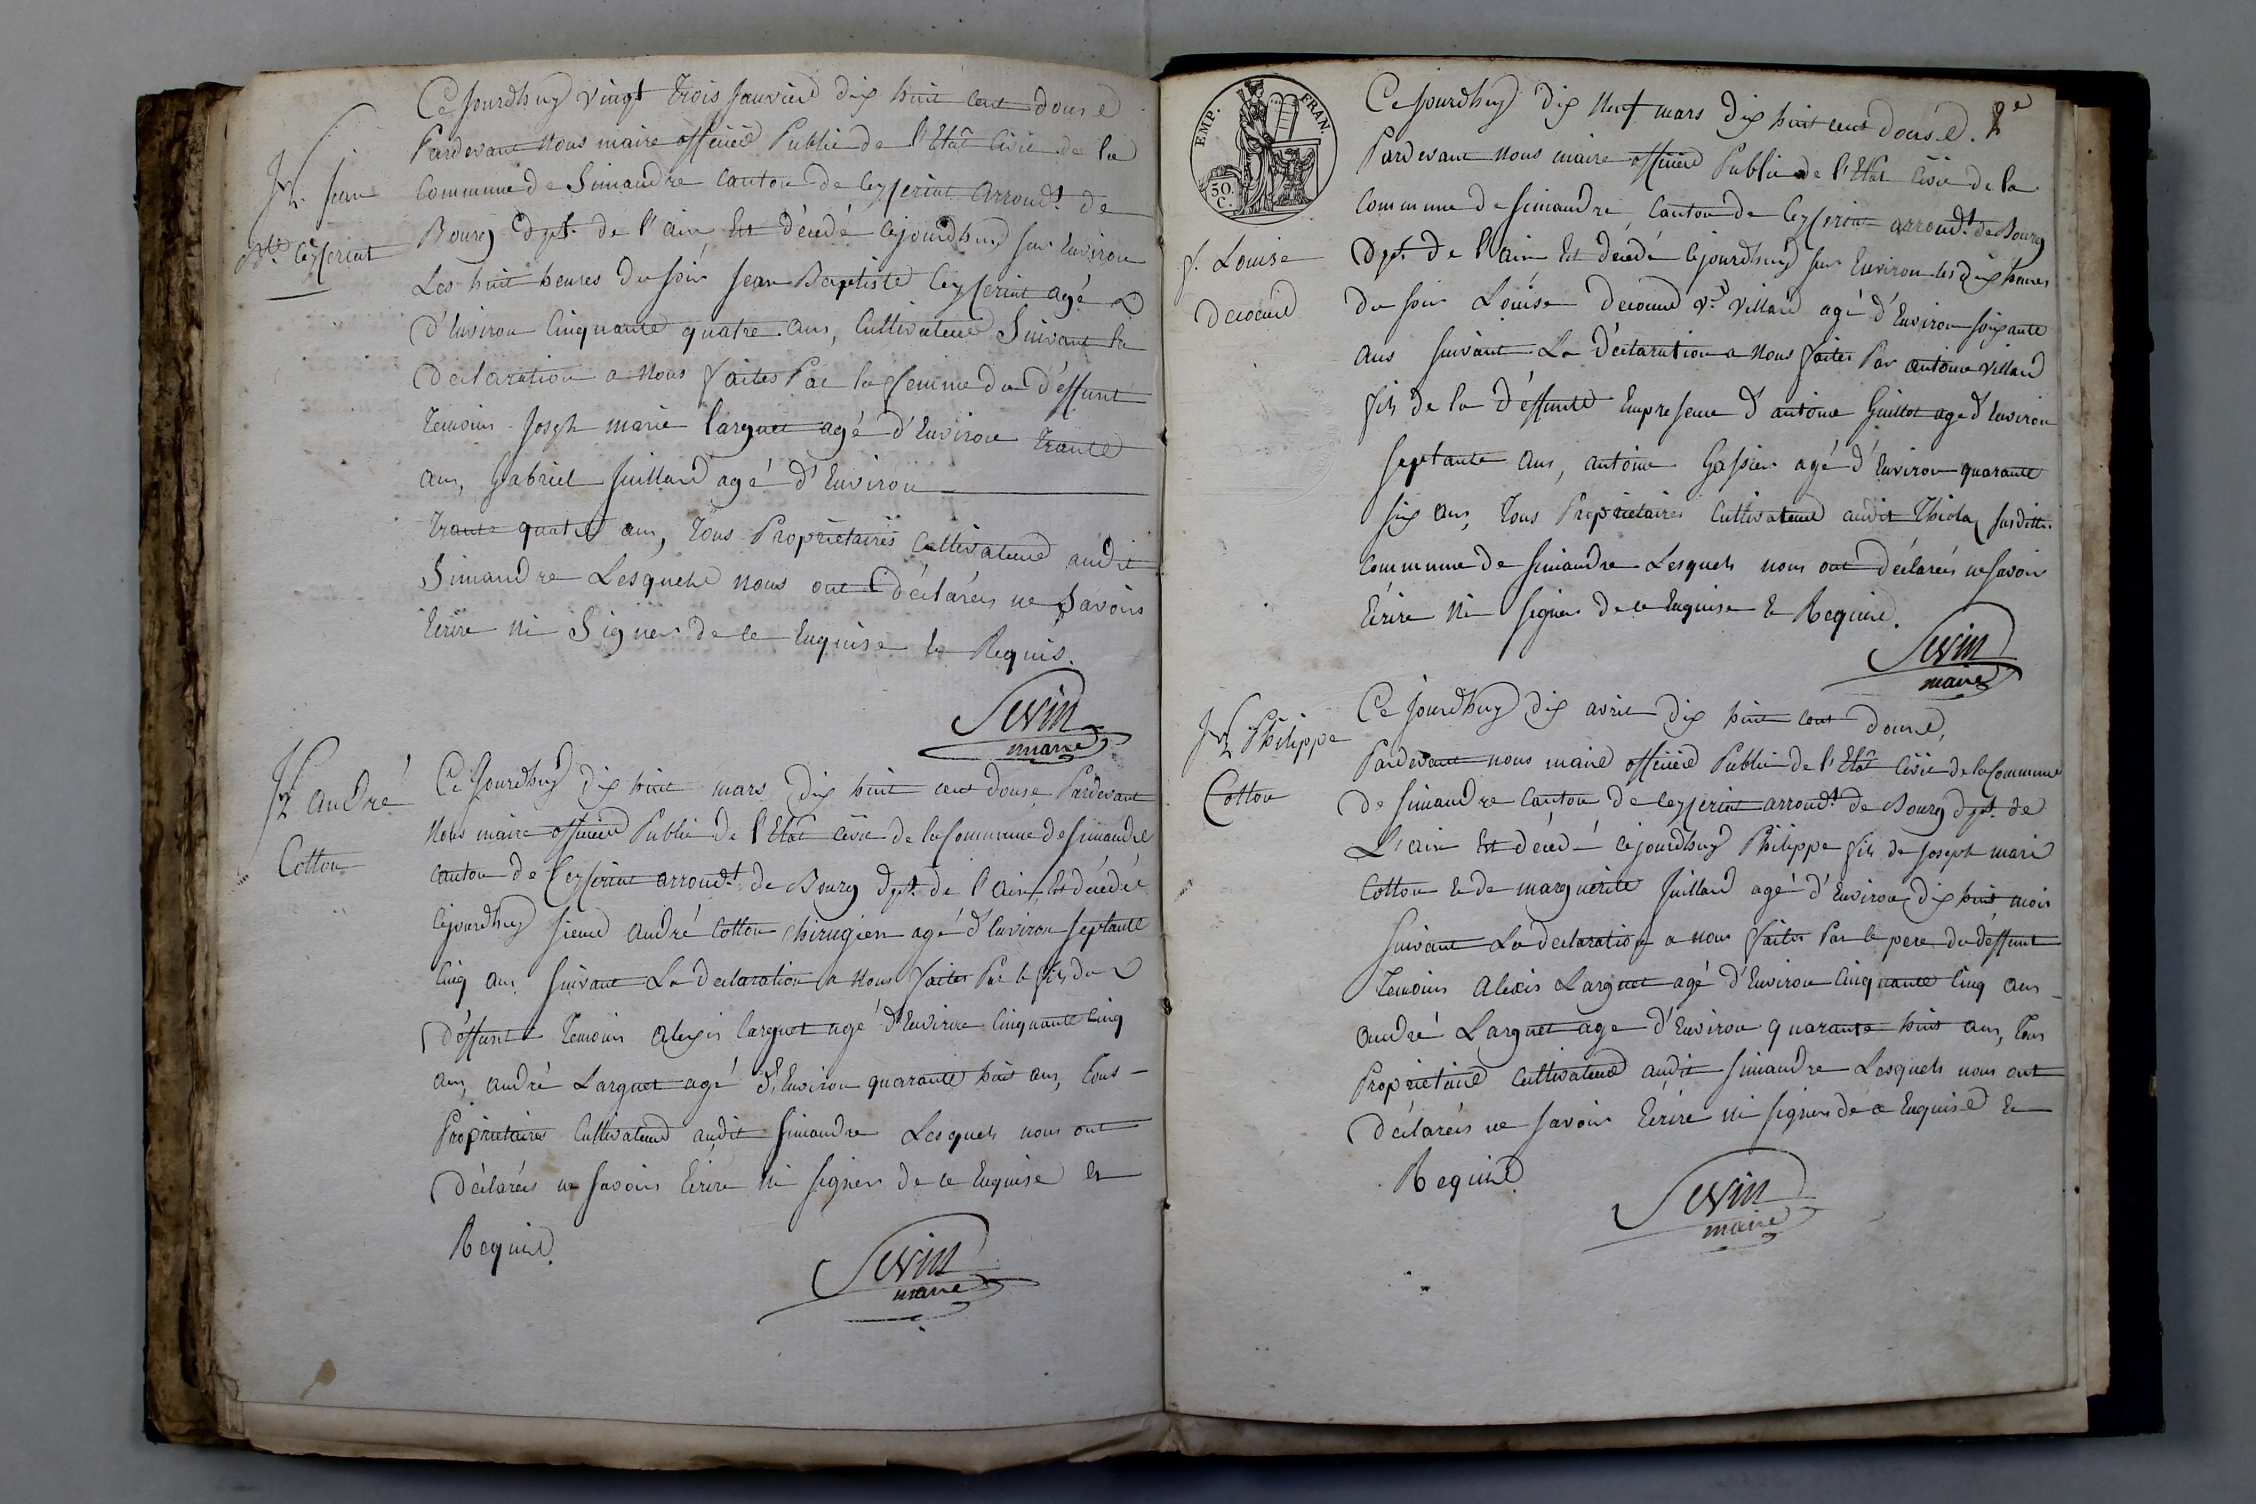 Ce jourdhuy vingt trois janvier dix huit cent douse
Pardevant nous maire officier Public de l'Etat Civil de la
Commune de Simandre Canton de Ceyseriat arrond.t de
Bourg dpt. de l'ain Est décédé cejourdhuy sur Environ
Les huit heures du soir Jean Baptiste Ceyseriat agé
d'Environ Cinquante quatre ans, Cultivateur Suivant la
Declaration a nous faites Par la femme du déffunt
Temoins Joseph marie Larguet agé d'Environ trante
ans, Gabriel Juillard agé d'Environ
trante quatre ans, tous Proprietaires Cultivateurs audit
Simandre Lesquels nous ont déclarés ne Savoirs
Ecrire ni Signer de ce Enquise et Requis.
Sevin
maire
Jean
B.te Ceyseriat
André
Cotton
Ce jourdhuy dix huit mars dix huit cent douse Pardevant
Nous maire officier Public de l'Etat Civil de la Commune de Simandre
Canton de Ceyseriat arrond.t de Bourg dpt. de l'ain Est décédé
Cejourdhuy sieur André Cotton Chirugien agé d'Environ septante
Cinq ans suivant La declaration a nous faites Par le fils du
déffunt Temoins Alexis Larguet agé d'Environ Cinquante Cinq
ans, André Larguet agé d'Environ quarante huit ans, tous
Proprietaires Cultivateurs audit Simandre Lesquels nous ont
déclarés ne savoirs Ecrire ni signer de ce Enquise et
Requise.
Sevin
maire
EMP. FRAN.
50.
C.
2e
Ce jourdhuy dix neuf mars dix huit cent douse.
Pardevant nous maire officier Public de l'Etat Civil de la
Commune de Simandre Canton de Ceyseriat arrond.t de Bourg
dpt. de l'ain Est décédé cejourdhuy sur Environ les dix heures
du soir Louise Decoeur v.e Villard agé d'Environ soixante
ans suivant La déclaration a nous faites Par antoine Villard
fils de la déffunte Enpresence d'antoine Guillot agé d'Environ
septante ans, antoine Gassier agé d'Environ quarante
six ans, tous Proprietaires Cultivateurs audit Thiola susditte
Commune de Simandre Lesquels nous ont déclarés ne savoir
Ecrire ni signer de ce Enquise et Requise.
Sevin
maire
f. Louise
Decoeur
Philippe
Cotton
Ce jourdhuy dix avril dix huit cent douse,
Pardevant nous maire officier Public de l'Etat Civil de la Commune
de Simandre Canton de Ceyseriat arrond.t de Bourg dpt. de
L'ain Est décédé cejourdhuy Philippe fils de Joseph marie
Cotton et de marguerite Juillard agé d'Environ dix huit mois
suivant La declaration a nous faites Par le pere du déffunt
Temoins Alexis Larguet agé d'Environ Cinquante Cinq ans
André Larguet age d'Environ quarante huit ans, tous
Proprietaires Cultivateurs audit Simandre Lesquels nous ont
déclarés ne savoir Ecrire ni signer de ce Enquise et
Requise
Sevin
maire